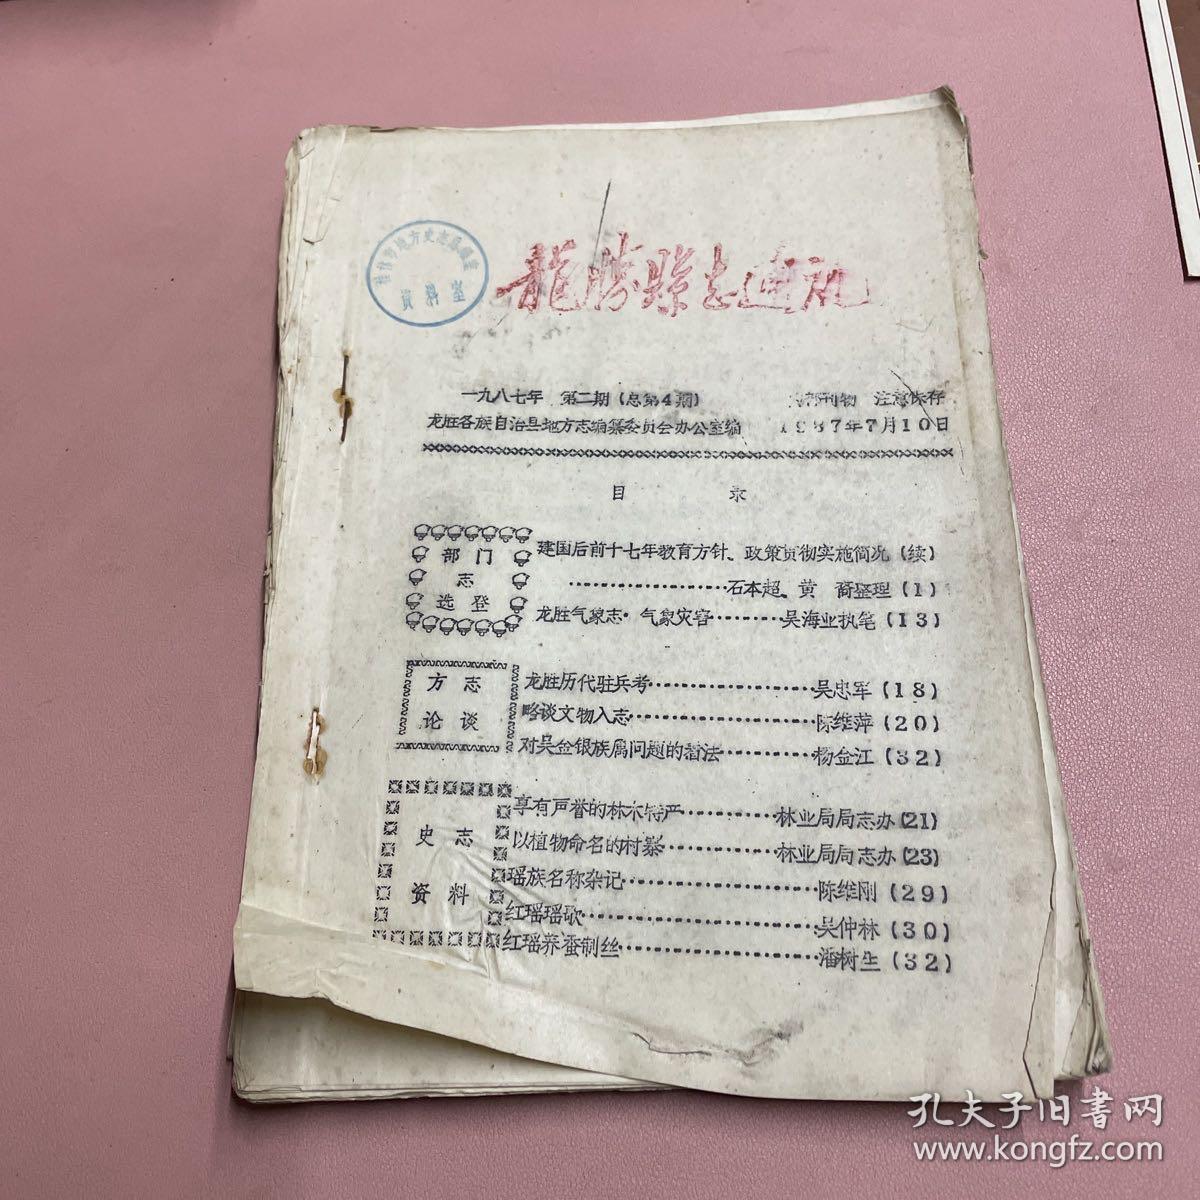 桂林市地方史志总编室
资料室
龍勝縣志通讯
一九八七年 第二期(总第4期) 内部刊物 注意保存
龙胜各族自治县地方志编纂委员会办公室编 1987年7月10日
目 录
部门
志
选登
建国后前十七年教育方针、政策贯彻实施简况(续)
石本超、黄 裔整理(1)
龙胜气象志·气象灾害 吴海业执笔(13)
方志
论谈
龙胜历代驻兵考 吴忠军(18)
略谈文物入志 陈维萍(20)
对吴金银族属问题的看法 杨金江(32)
史志
资料
享有声誉的林木特产 林业局局志办(21)
以植物命名的村寨 林业局局志办(23)
瑶族名称杂记 陈维刚(29)
红瑶瑶歌 吴仲林(30)
红瑶养蚕制丝 潘树生(32)
孔夫子旧书网
www.kongfz.com